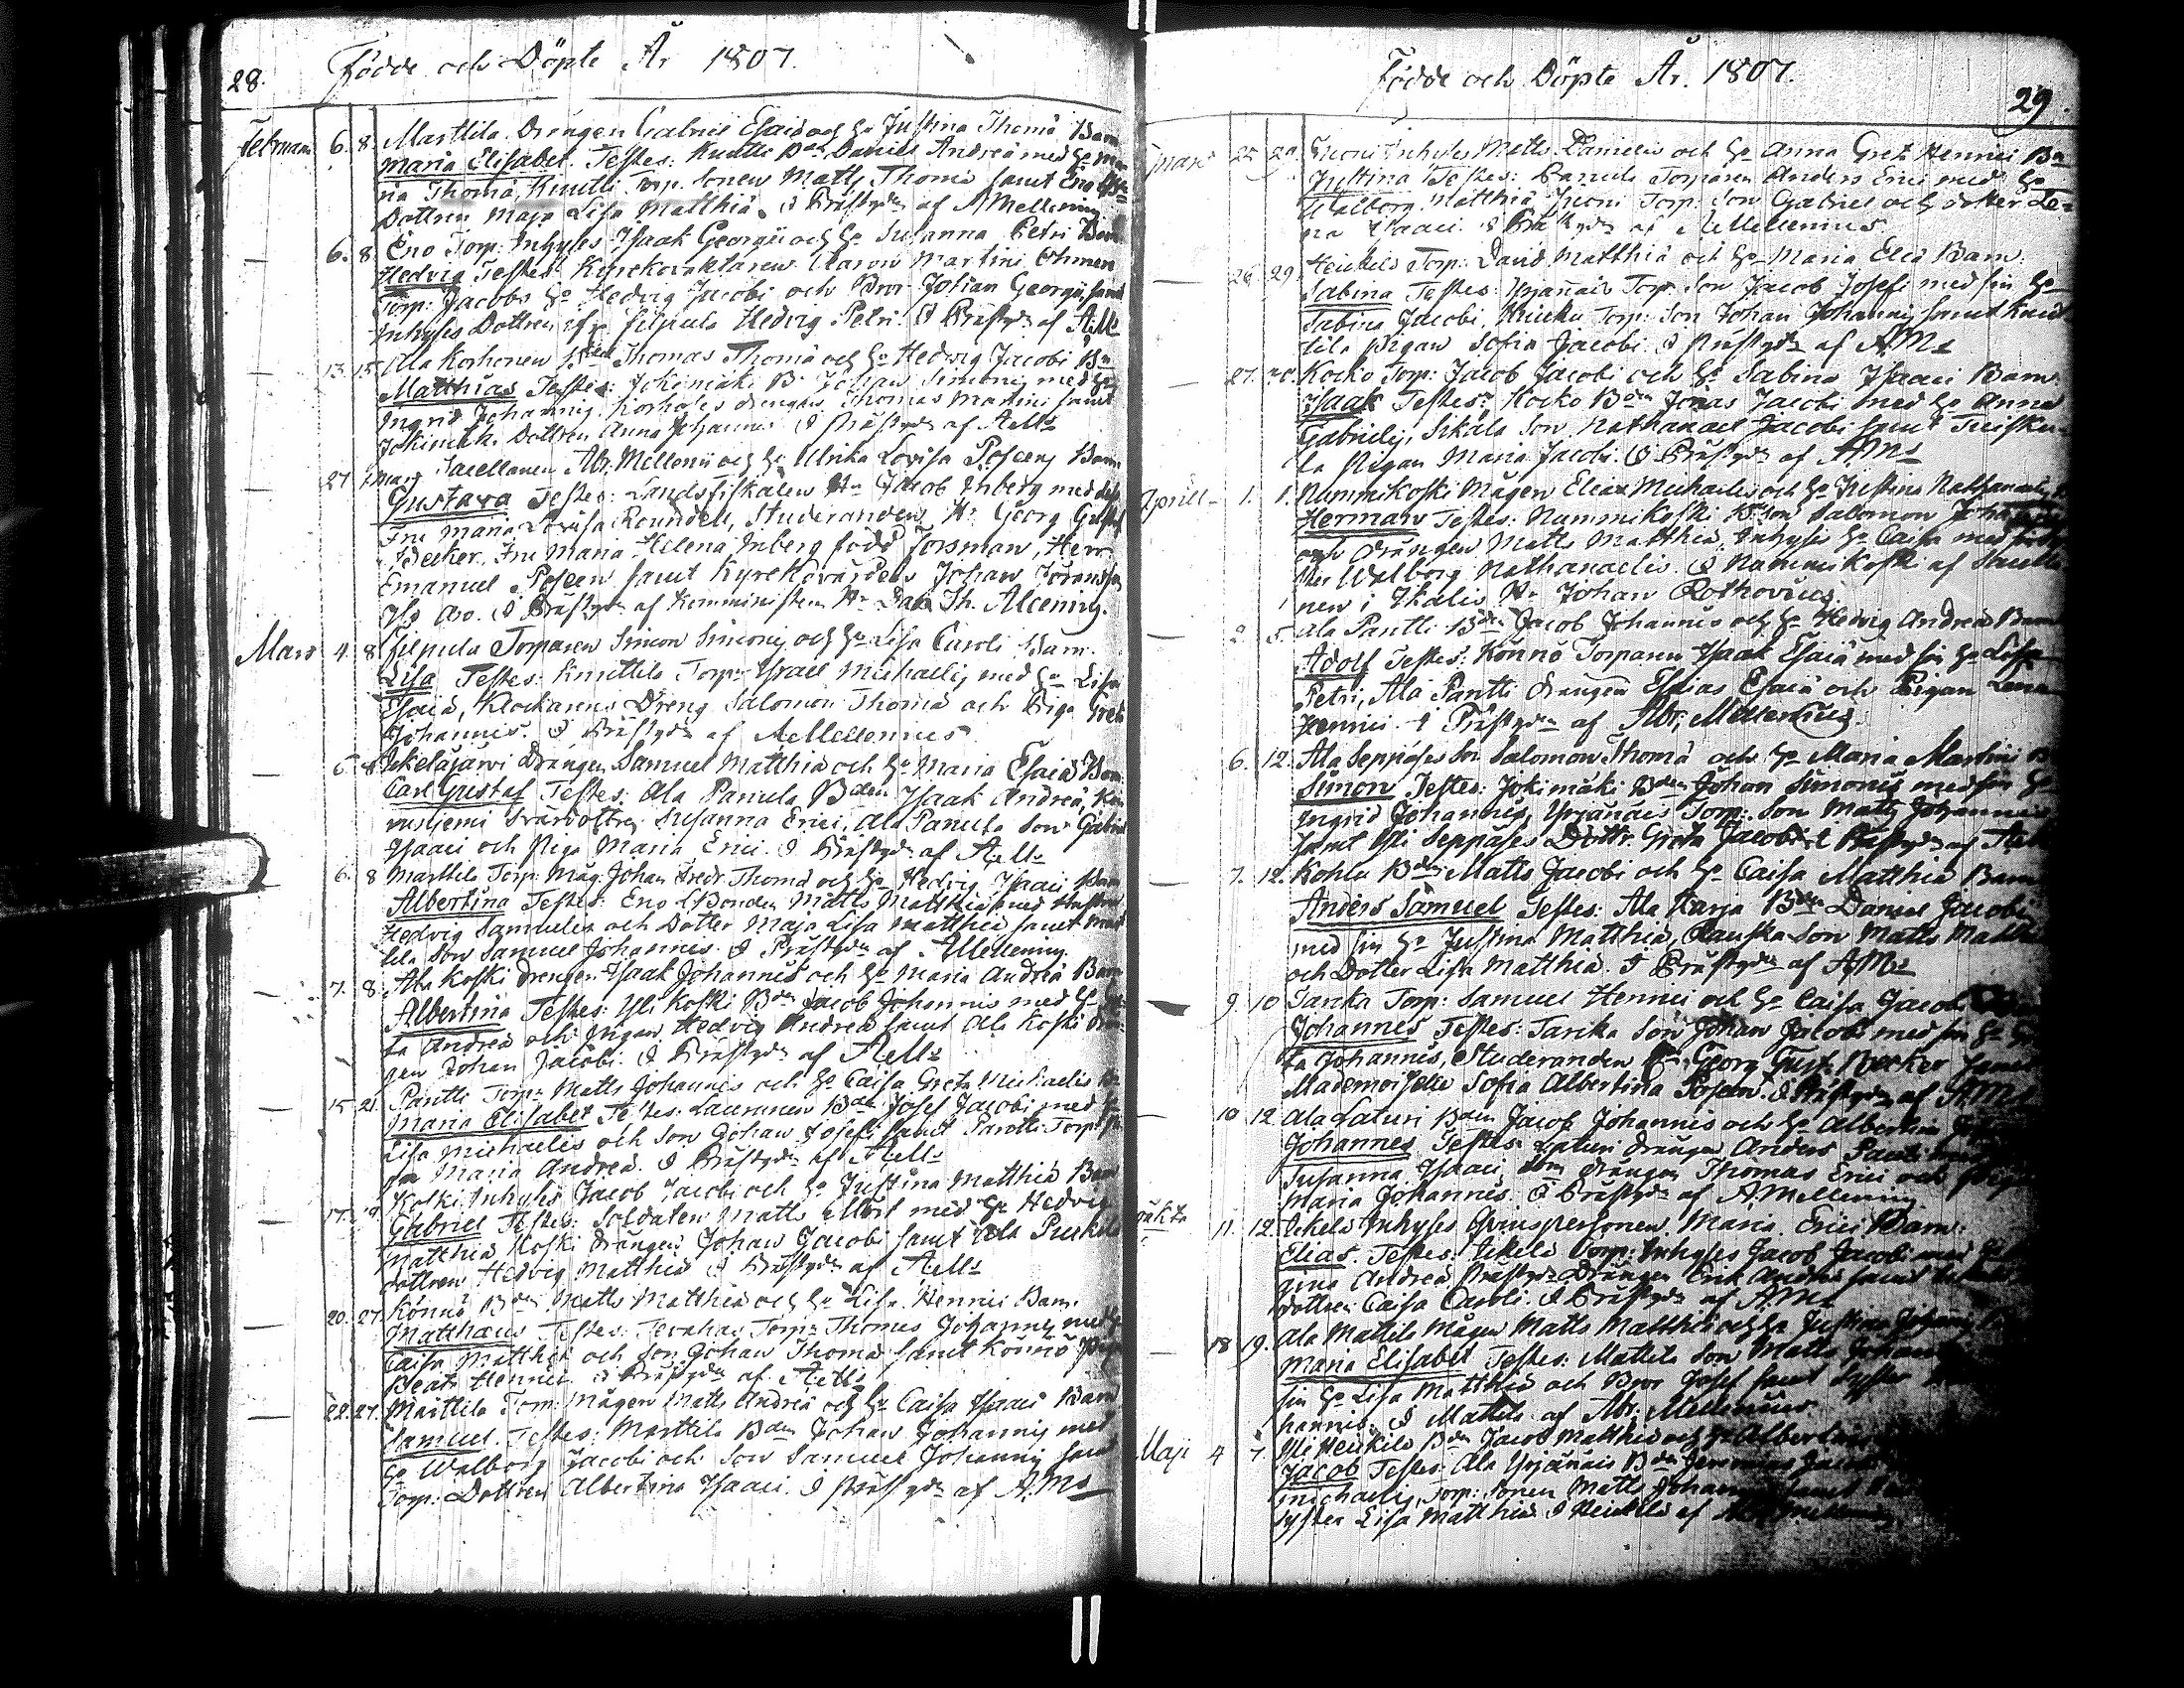 28. Födde och Döpte År 1807.
Februarii 6. 8. Marttila Drängen Gabriel Esaiæ och H:o Justina Thomæ Barn
Maria Elisabet. Testes: Knutti B:den Daniel Andreæ med H:o Ma-
ria Thomæ, Knutti Torp. Sonen Matts Thomæ samt Eno
Dottren Maja Lisa Matthiæ. I Prästg:n af AMellenius
6. 8. Eno Torp: Inhyses Isaak Georgii och H:o Susanna Petri Barn
Hedvig Testes: Kyrckovaktaren Aaron Martini Öhmen
Torp: Jacobs H:o Hedvig Jacobi och Bror Johan Georgii, samt
Inhyses Dottren ifr. Filpula Hedvig Petri. I Prästg:n af AMs
13. 15. Ala Korhonen B:den Thomas Thomæ och H:o Hedvig Jacobi B:n
Matthias Testes: Jokimäki B: Johan Simonis med H:o
Ingrid Johannis, Korholas drängen Thomas Martini samt
Jokimäki Dottren Anna Johannis I Prästg:n af AMs
27 1 Mars Sacellanen Abr. Mellenii och H:o Ulrika Lovisa Poscens Barn
Gustava Testes: Landsfiskalen H:r Jacob Inberg med dess
Fru Maria Lovisa Roundell, Studeranden H:r Georg Gustaf
Becker, Fru Maria Helena Inberg född Forsman, Herr
Emanuel Poscen samt Kyrckovärdens Johan Jöransson
I Prästg:n af Komministern H:r Dav. Th. Alcenius.
Mars 4. 8. Filpula Torparen Simon Simonis och H:o Lisa Caroli Barn.
Lisa Testes: Knuttila Torp: Israel Michaelis med H:o Lisa
Esaiæ, Klockarens Dreng Salomon Thomæ och Piga Greta
Johannis. I Prästg:n af AMellenius
5. 8. Ikeläjärvi Drängen Samuel Matthiæ och H:o Maria Esaiæ Barn
Carl Gustaf Testes: Ala Panula B:den Isaak Andreæ,
Svärdottren Susanna Erici, Ala Panula Son Gabriel
Isaaci och Piga Maria Erici. I Prästg:n af AMs
6. 8 Marttila Torp: Måg. Johan Fredr. Thomæ och H:o Hedvig Isaaci Barn
Albertina Testes: Eno Bonden Matts Matthiæ med Hustru
Hedvig Samuelis och Dotter Maja Lisa Matthiæ samt Mart
tila Son Samuel Johannis. I Prästg:n af AMellenius.
7. 8. Ala Koski Drengen Isaak Johannis och H:o Maria Andreæ Barn
Albertina Testes: Yli Koski B:den Jacob Johannis med H:o
ta Andreæ och Pigan Hedvig Andreæ samt Ala Koski Drän-
gen Johan Jacobi. I Prästg:n af AMs
15. 21. Pantti Torp: Matts Johannis och H:o Caisa Greta Michaelis B:n
Maria Elisabet Testes: Laurunen B:den Josef Jacobi med H:o
Lisa Michaelis och Son Johan Josefi samt Pantti Torp:
Maria Andreæ. I Prästg:n af AMs
17. 19. Koski Inhyses Jacob Jacobi och H:o Justina Matthiæ Barn
Gabriel Testes: Soldaten Matts Mört med H:o Hedvig
Matthiæ Koski drängen Johan Jacobi samt Ala Peckola
dottren Hedvig Matthiæ I Prästg:n af AMs
20. 27. Könnö B:den Matts Matthiæ och H:o Lisa Henrici Barn.
Matthæus Testes: Tervahas Torp: Thomas Johannis med H:o
Caisa Matthiæ och Son Johan Thomæ samt Könnö Piga
Beata Henrici. I Prästg:n af AMs
22. 27. Marttila Torp. Mågen Matts Andreæ och H:o Caisa Isaaci Barn
Samuel. Testes: Marttila B:den Johan Johannis med
H:o Walborg Jacobi och Son Samuel Johannis samt
Torp: Dottren Albertina Isaaci. I Prästg:n af AMs
Födde och Döpte År. 1807. 29.
Mars 25 29. Inhyses Matts Danielis och H:o Anna Greta Henrici B:n
Justina Testes: Panula Torparen Anders Erici med H:o
Walborg Matthiæ Torp: Son Gabriel och dotter Le-
na Isaaci. I Prästg:n af AMellenius.
26. 29. Heickilä Torp: David Matthiæ och H:o Maria Eliæ Barn.
Sabina Testes: Yrjänäis Torp. Son Jacob Josefi med sin H:o
Sabina Jacobi, Torp: Son Johan Johannis samt
tila Pigan Sofia Jacobi I Prästg:n af AMs
27. Kocko Torp: Jacob Jacobi och H:o Sabina Isaaci Barn.
Isaak Testes: Kocko B:den Jonas Jacobi med H:o Anna
Gabrielis, Sikala Son Nathanael Jacobi samt
la Pigan Maria Jacobi. I Prästg:n af AMs
Aprill 1. 1. Nummikoski Mågen Elias Michaelis och H:o Justina Nathanaelis
Herman Testes: Nummikoski B: Son Salomon
och drängen Matts Matthiæ, Inhyses H:o Caisa med
ter Walborg Nathanaelis. I Nummikoski af Sacella-
nen i Ikalis H:r Johan Rothovius.
2. 5. Ala Pantti B:den Jacob Johannis och H:o Hedvig Andreæ Barn
Adolf Testes: Könnö Torparen Isaak Esaiæ med sin H:o Lisa
Petri, Ala Pantti drängen Esaias Esaiæ och Pigan Lena
Henrici. I Prästg:n af Abr. Mellenius.
6. 12. Ala Seppäses Son Salomon Thomæ och H:o Maria Martini B
Simon Testes: Jokimäki B:den Johan Simonis med sin H:o
Ingrid Johannis, Yrjänäis Torp: Son Matts Johannis
samt Yli Seppäses Dottr. Greta Jacobi I Prästg:n af
7. 12. Kohlu B:den Matts Jacobi och H:o Caisa Matthiæ Barn
Anders Samuel Testes: Ala Harja B:den Daniel Jacobi
med sin H:o Justina Matthiæ, Rauska Son Matts Matthiæ
och Dotter Lisa Matthiæ. I Prästg:n af AMs
9. 10 Tanka Torp: Samuel Henrici och H:o Caisa Jacobi
Johannes Testes: Tanka Son Johan Jacobi med sin H:o
ta Johannis, Studeranden H:r Georg Gust. Becker samt
Mademoiselle Sofia Albertina Poscen. I Prästg:n af AMs
10 12 Ala Laturi B:den Jacob Johannis och H:o Albertina
Johannes Testes: Laturi drängen Anders
Susanna Isaaci, drängen Thomas Erici och Piga
Maria Johannis. I Prästg:n af AMellenius
oäkta 11. 12. Ikelä Inhyses Qvinspersonen Maria Erici Barn:
Elias. Testes: Ikelä Torp: Inhyses Jacob Jacobi med H:o
gina Andreæ Prästg:ns Drängen Erik Andreæ samt
dottren Caisa Caroli. I Prästg:n af AMs
18 19. Ala Mattila Mågen Matts Matthiæ och H:o Justina Johannis
Maria Elisabet Testes: Mattila Son Matts Johannis
sin H:o Lisa Matthiæ och Bror Josef samt Syster
hannis. I Mattila af Abr. Mellenius.
Maji 4 7. Yli Heickilä B:den Jacob Matthiæ och H:o Albertina
Jacob Testes: Ala Yrjänäis B:den Jeremias Jacobi
Michaelis, Torp: Sonen Matts Johannis samt
Syster Lisa Matthiæ I Heickilä af Mellenius